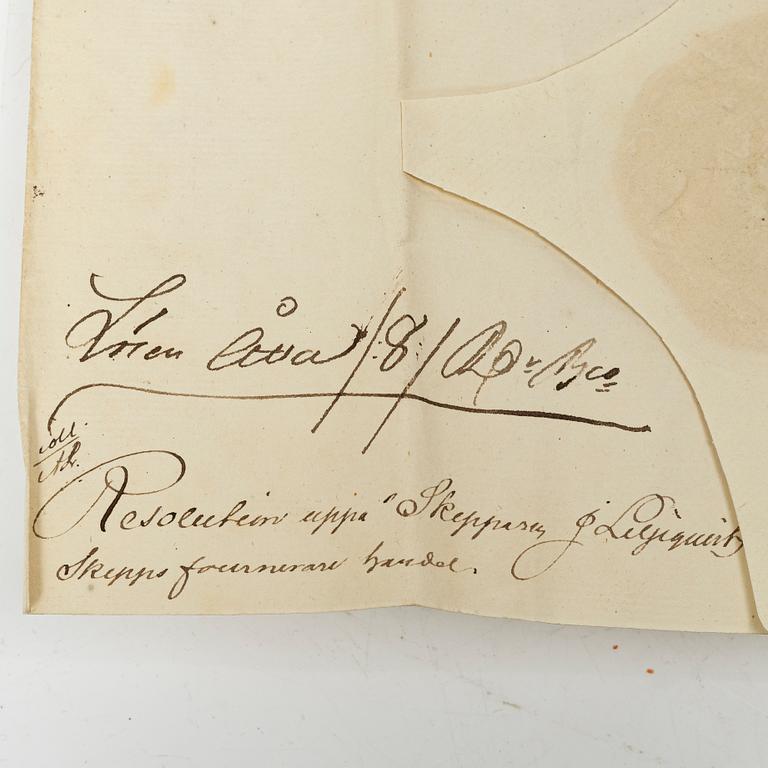 Lösen Åtta /:8:/ Rdr Bco
coll.
Resolution uppå Skepparen J Liljeqvists
Skepps fournerare handel.